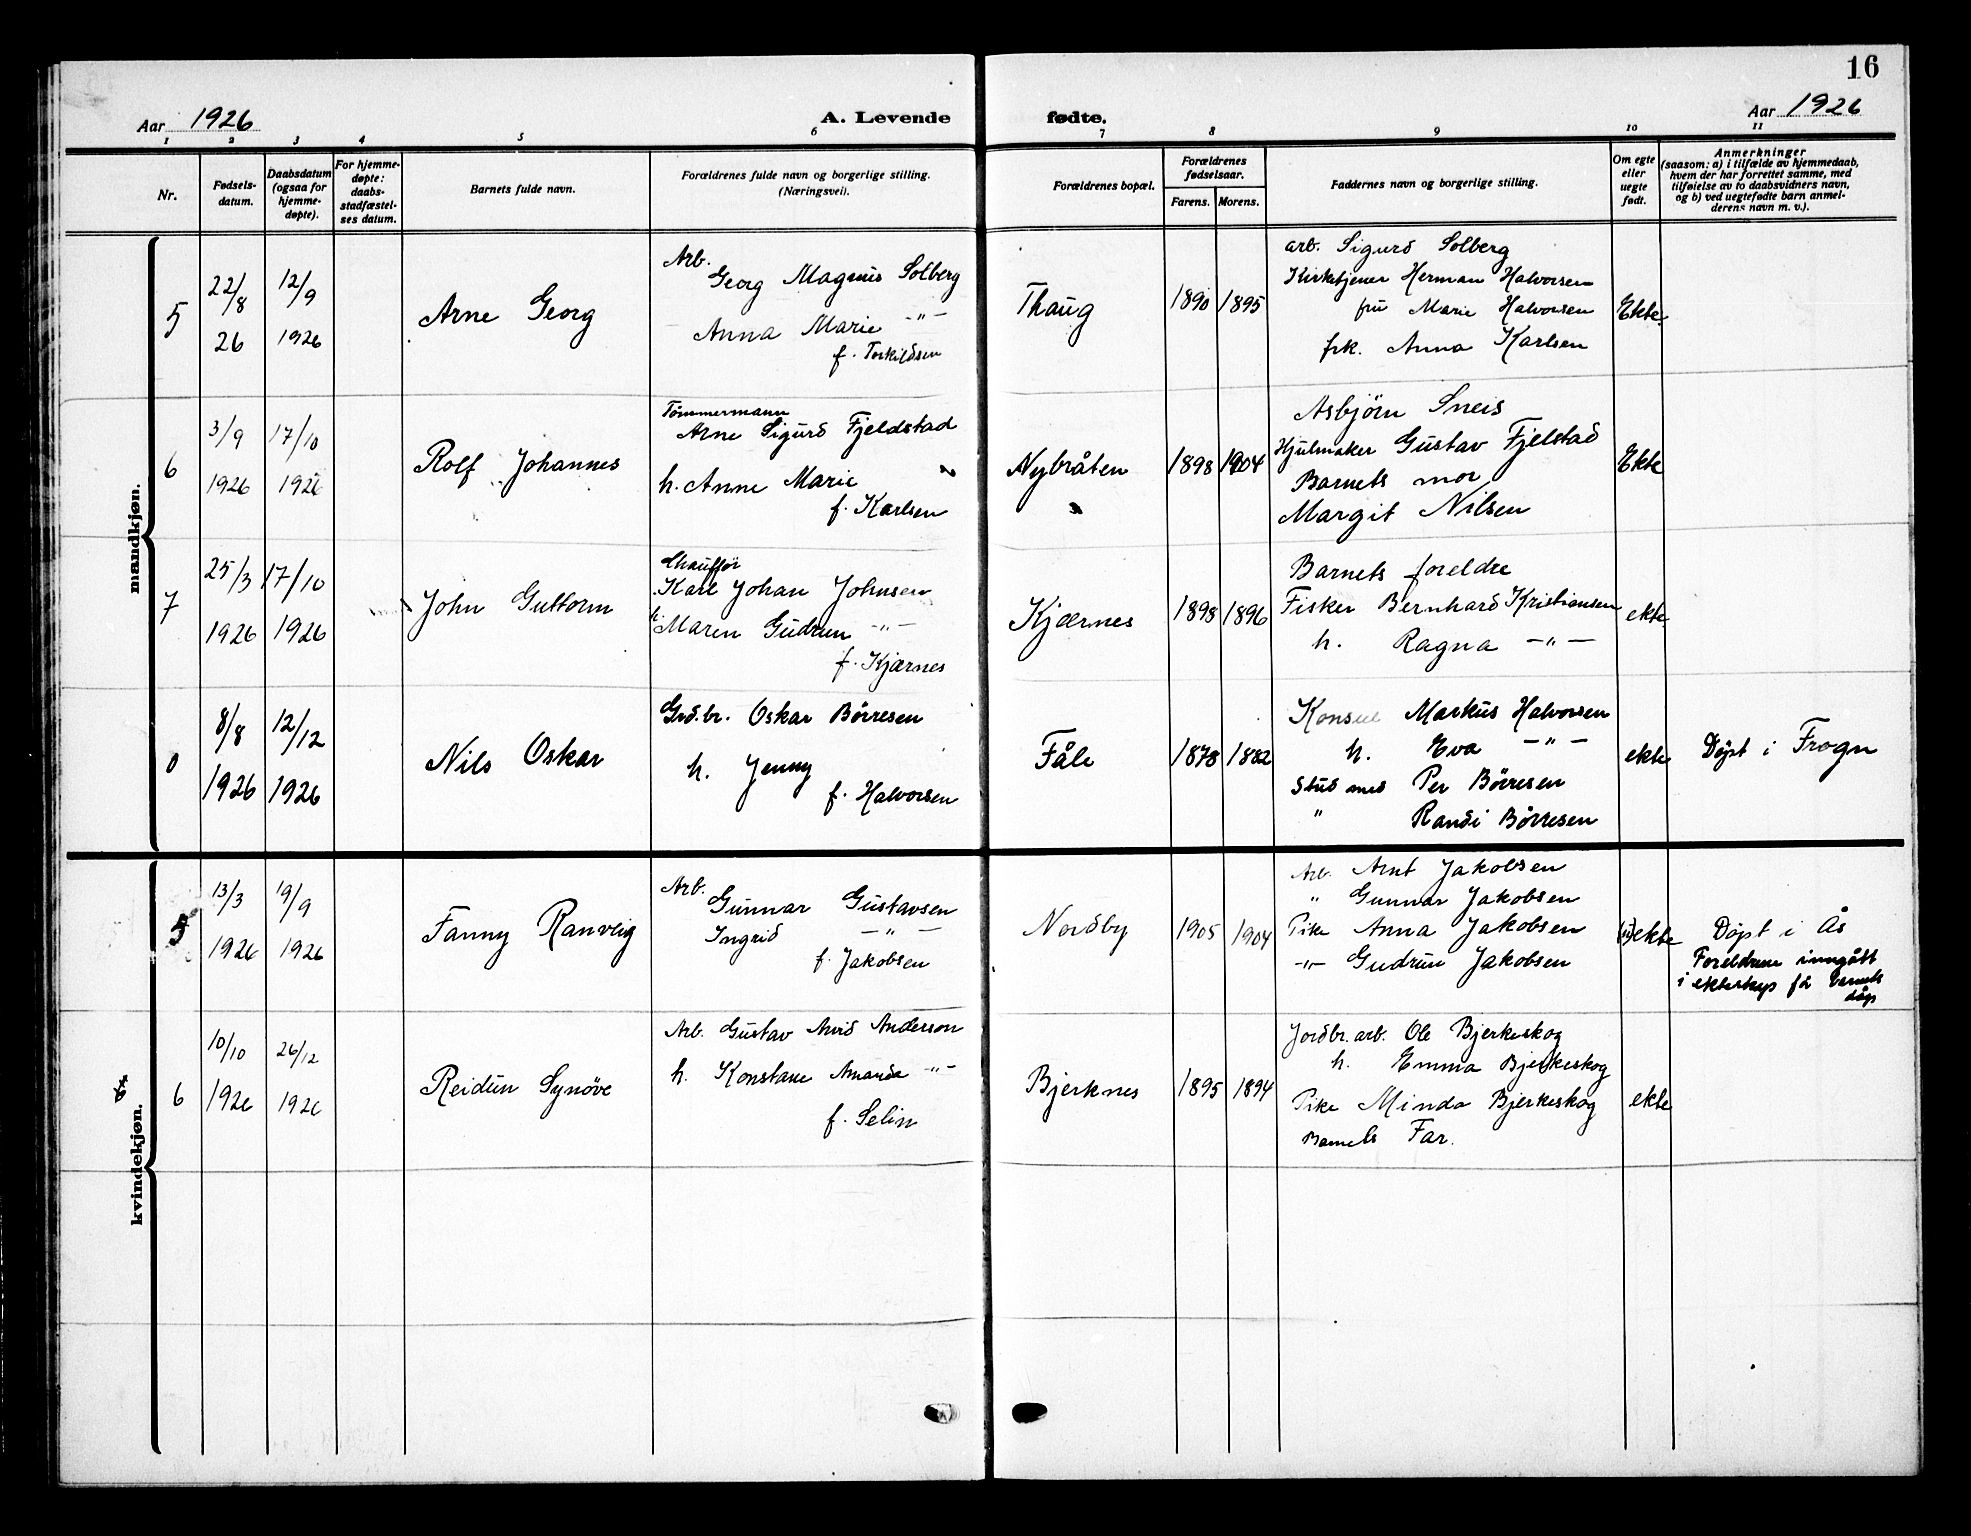 16
Aar 1926
A. Levende
fødte.
Aar 1926
1 2 3 4 5 6 7 8 9 10 11
Nr.
Fødsels-
datum.
Daabsdatum
(ogsaa for
hjemme-
døpte).
For hjemme-
døpte:
daabs-
stadfæstel-
ses datum.
Barnets fulde navn.
Forældrenes fulde navn og borgerlige stilling.
(Næringsvei).
Forældrenes bopæl.
Forældrenes
fødselsaar.
Farens. Morens.
Faddernes navn og borgerlige stilling.
Om egte
eller
uegte
født.
Anmerkninger
(saasom: a) i tilfælde av hjemmedaab,
hvem der har forrettet samme, med
tilføielse av to daabsvidners navn,
og b) ved uegtefødte barn anmel-
derens navn m. v.).
mandkjøn.
5
22/8
26
12/9
1926
Arne Georg
Arb.
Georg Magnus Solberg
Anna Marie -"-
f. Torkildsen
Thaug
1890 1895
arb. Sigurd Solberg
Kirketjener Herman Halvorsen
fru Marie Halvorsen
frk. Anna Karlsen
Ekte.
6
3/9
1926
17/10
1926
Rolf Johannes
Tömmermann
Arne Sigurd Fjeldstad
h. Anne Marie
f. Karlsen
Nybråten
1898 1904
Asbjörn Sneis
Hjulmaker Gustav Fjelstad
Barnets mor
Margit Nilsen
Ekte
7
25/3
1926
17/10
1926
John Guttorm
Chauffør
Karl Johan Johnsen
h. Maren Gudrun -"-
f. Kjærnes
Kjærnes
1898 1896
Barnets foreldre
Fisker Bernhard Kristiansen
h. Ragna -"-
ekte
8/8
1926
12/12
1926
Nils Oskar
Grd.br. Oskar Börresen
h. Jenny
f. Halvorsen
Fåle
1878 1882
Konsul Markus Halvorsen
h. Eva -"-
Stud med Per Börresen
" Randi Börresen
ekte
Döpt i Frogn
kvindekjøn.
5
13/3
1926
19/9
1926
Fanny Ranveig
Arb.
Gunnar Gustavsen
Ingrid -"-
f. Jakobsen
Nordby
1905 1904
Arb. Arnt Jakobsen
" Gunnar Jakobsen
Pike Anna Jakobsen
-"- Gudrun Jakobsen
(u)ekte
Döpt i Ås
Foreldrene inngått
i ekteskap før barnets
dåp
6
10/10
1926
26/12
1926
Reidun Synöve
Arb. Gustav Arvid Anderson
h. Konstanse Amanda -"-
f. Selin
Bjerknes
1895 1894
Jordbr. arb. Ole Bjerkeskog
h. Emma Bjerkeskog
Pike Minda Bjerkeskog
Barnets Far.
ekte